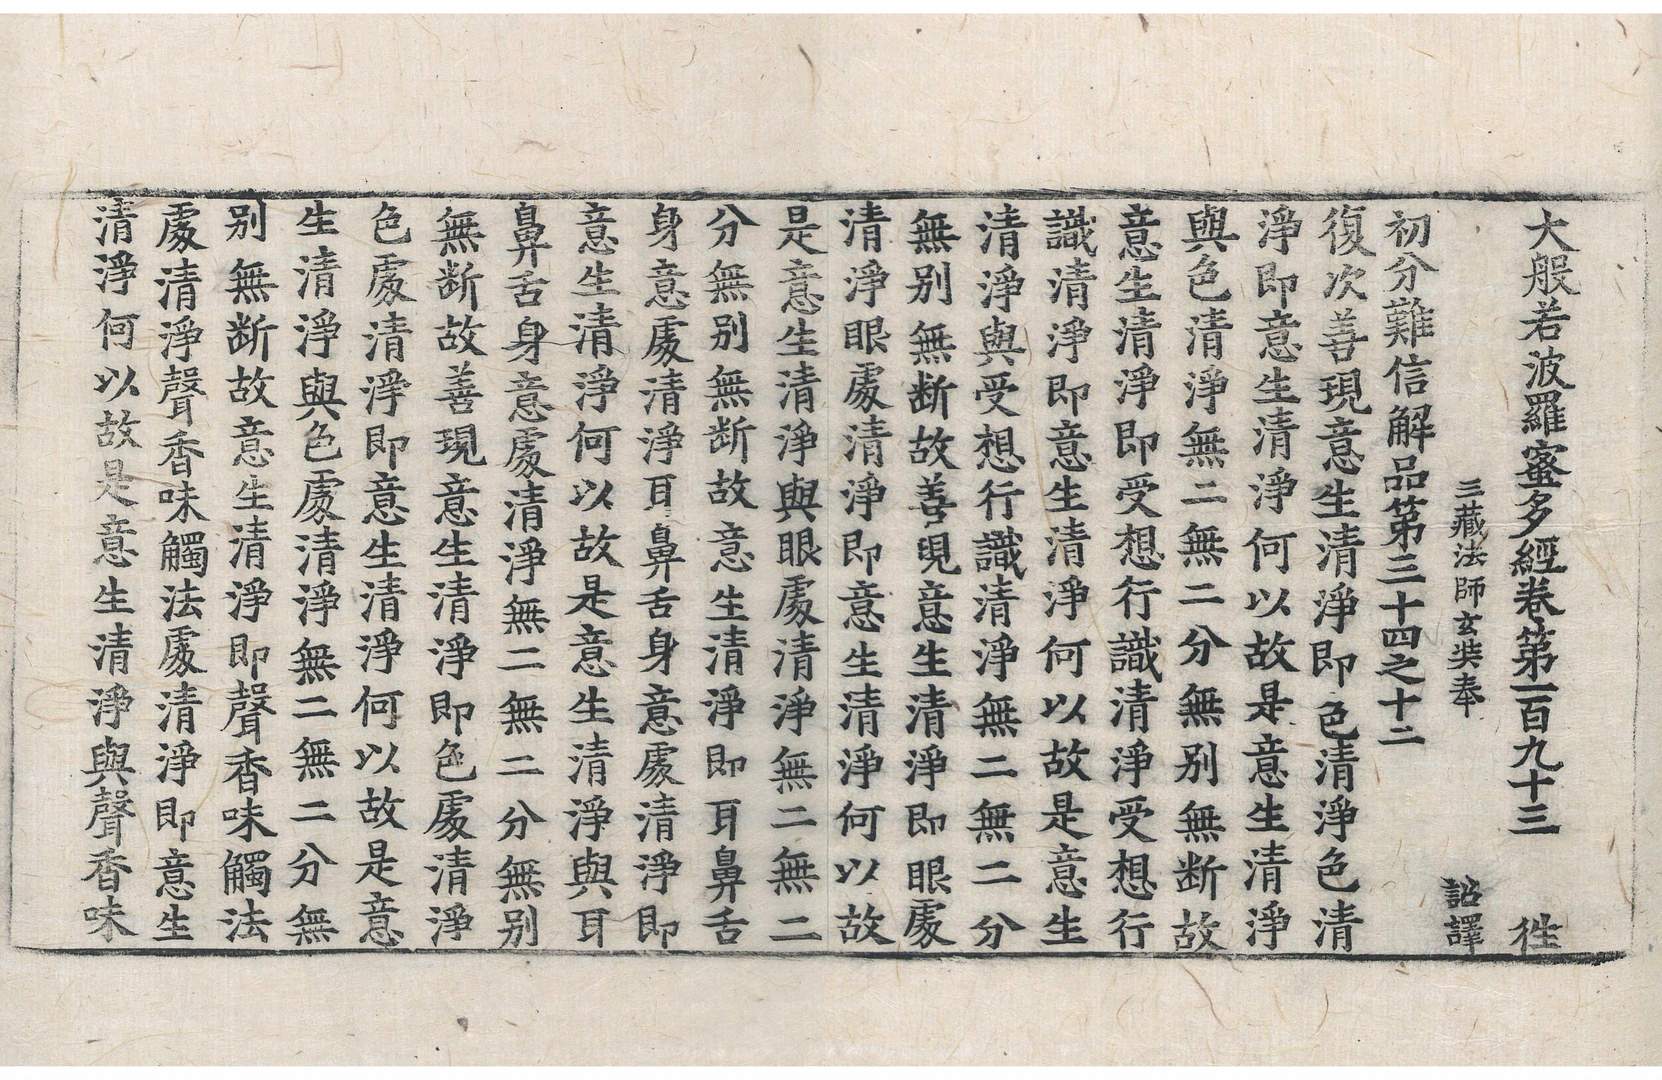 大般若波羅蜜多經卷第一百九十三 徃
三藏法師玄奘奉 詔譯
初分難信解品第三十四之十二
復次善現意生清淨即色清淨色清
淨即意生清淨何以故是意生清淨
與色清淨無二無二分無別無断故
意生清淨即受想行識清淨受想行
識清淨即意生清淨何以故是意生
清淨與受想行識清淨無二無二分
無別無断故善現意生清淨即眼處
清淨眼處清淨即意生清淨何以故
是意生清淨與眼處清淨無二無二
分無別無断故意生清淨即耳鼻舌
身意處清淨耳鼻舌身意處清淨即
意生清淨何以故是意生清淨與耳
鼻舌身意處清淨無二無二分無別
無断故善現意生清淨即色處清淨
色處清淨即意生清淨何以故是意
生清淨與色處清淨無二無二分無
別無断故意生清淨即聲香味觸法
處清淨聲香味觸法處清淨即意生
清淨何以故是意生清淨與聲香味